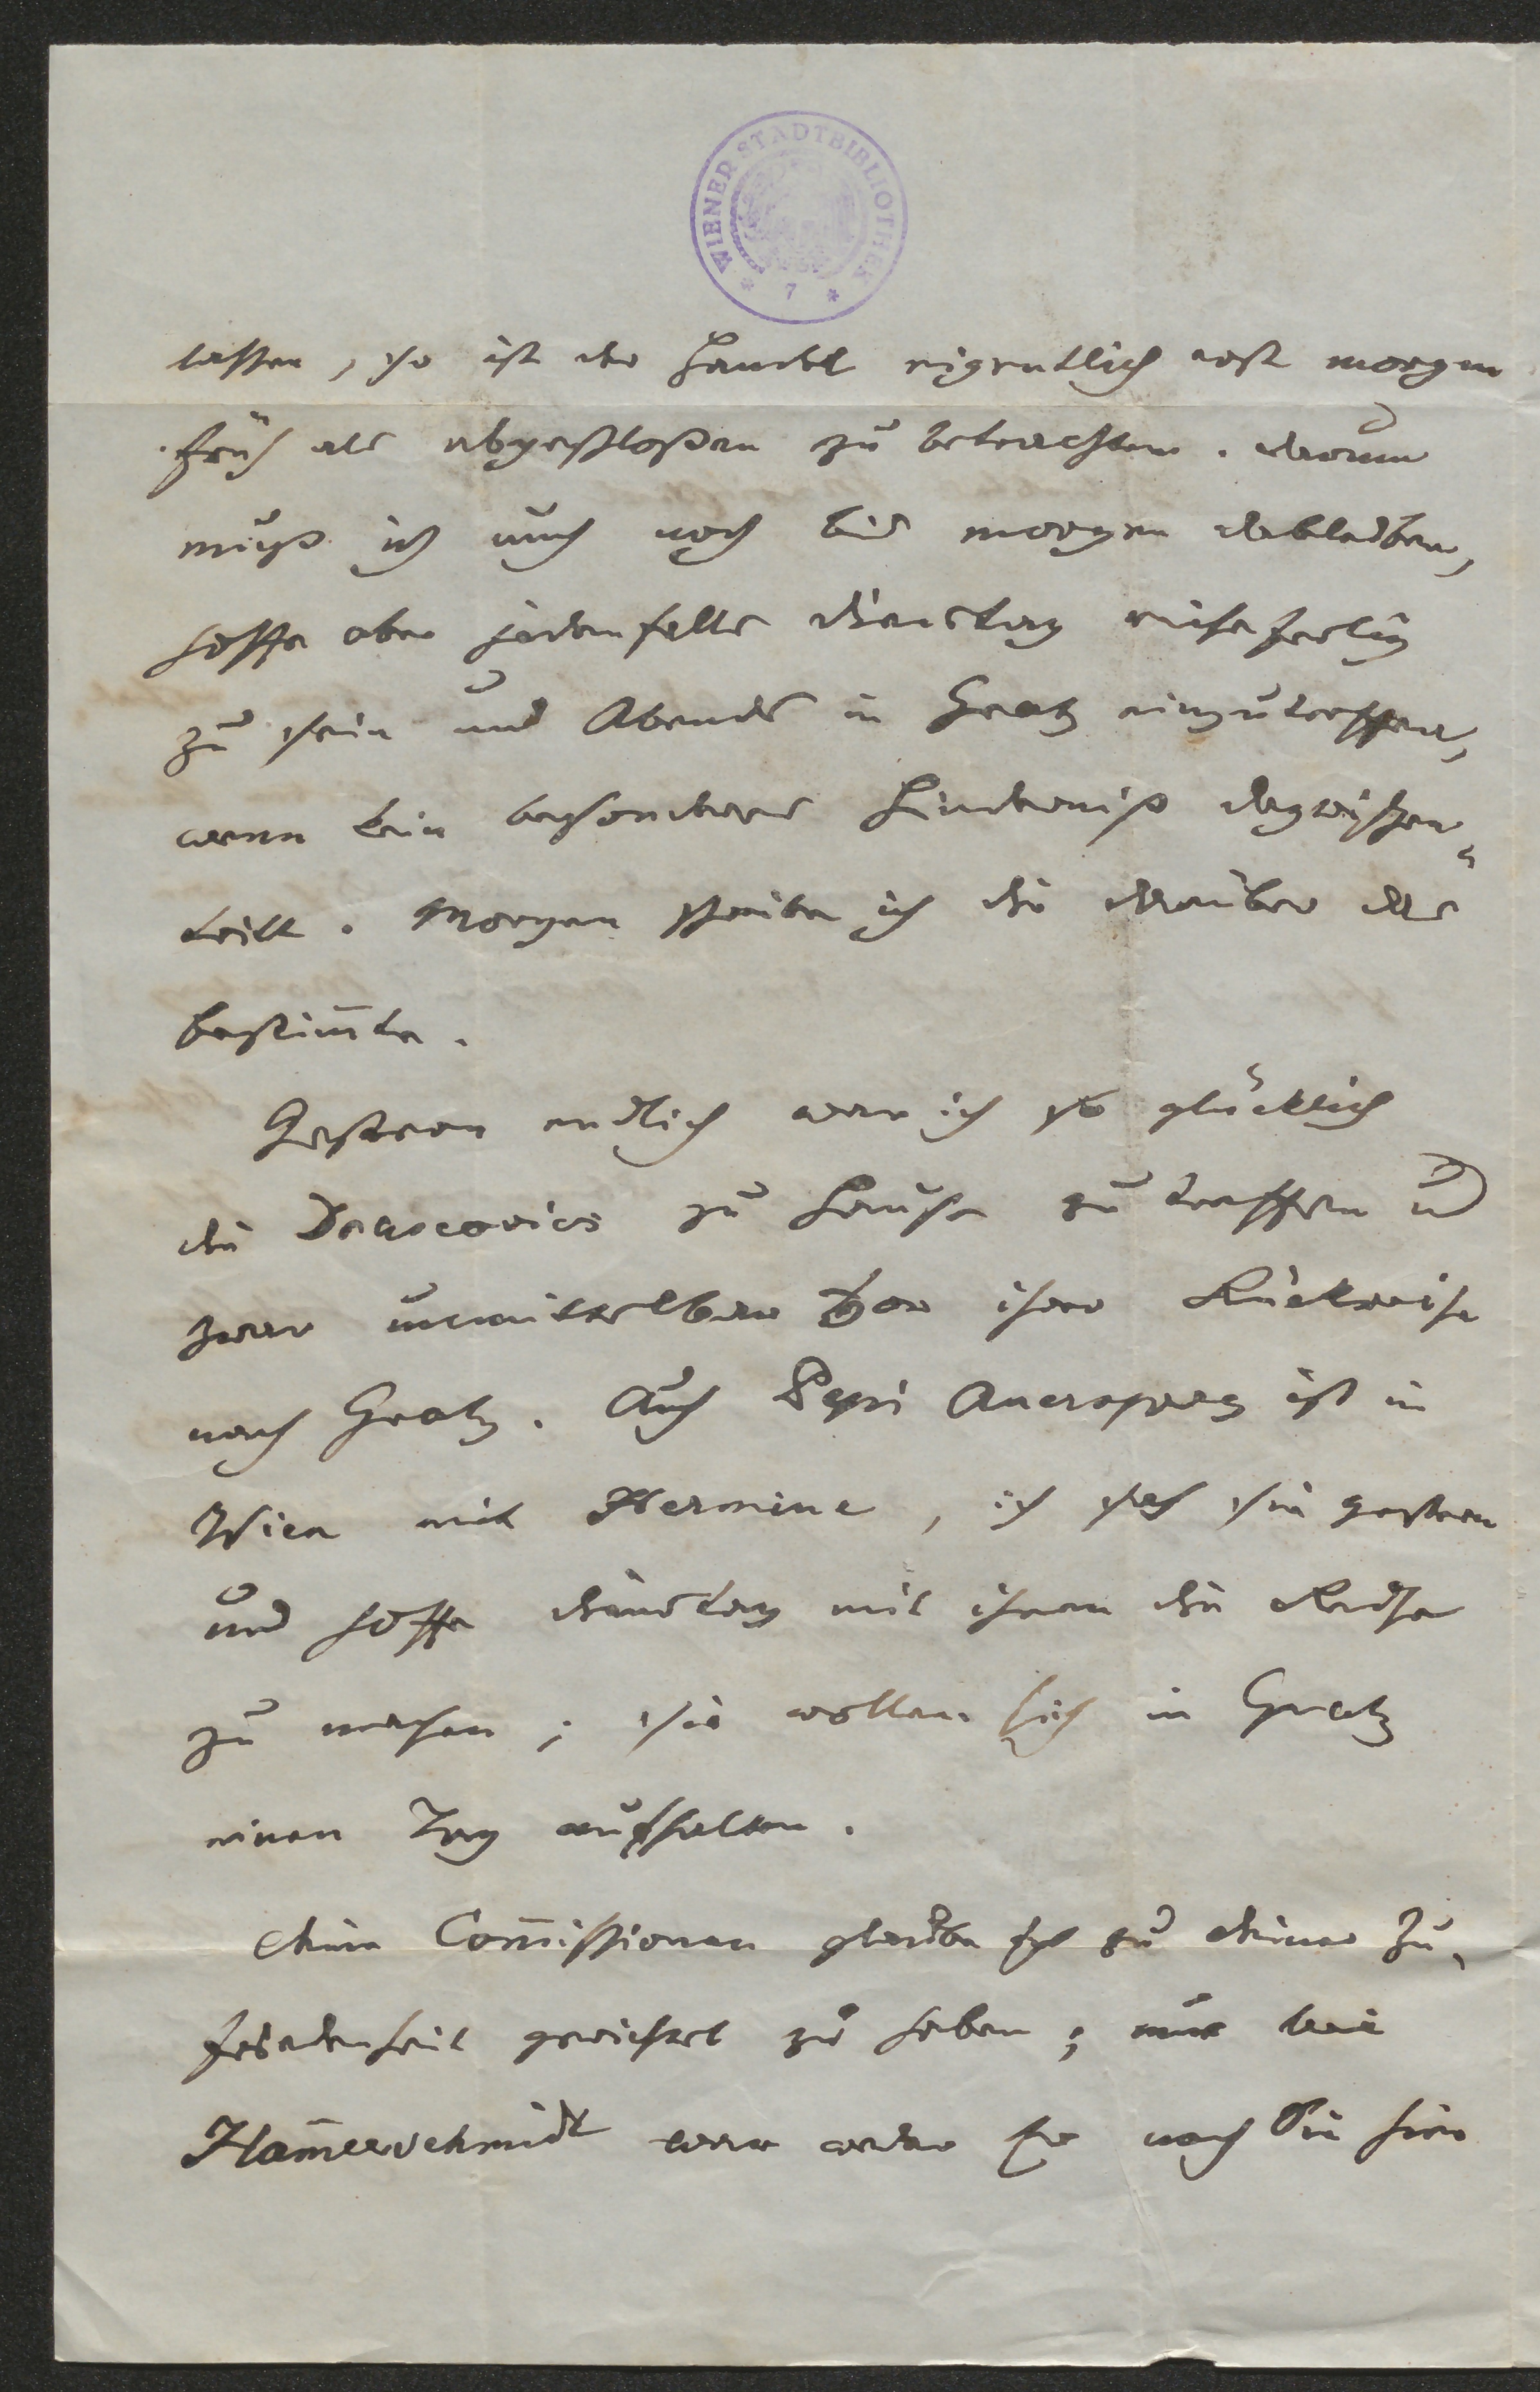 WIENER STADTBIBLIOTHEK
* 7 *
lassen, so ist der Handel eigentlich erst morgen
früh als abgeschloßen zu betrachten. darum
muß ich auch noch bis morgen dableiben,
hoffe aber jedenfalls dienstag reisefertig
zu sein und Abends in Gratz einzutreffen,
wenn kein besonderes Hinderniß dazwischen-
tritt. Morgen schreibe ich dir darüber das
bestim̅te.
Gestern endlich war ich so glücklich
die Drascovics zu Hause zu treffen u
zwar unmittelbar vor ihrer Rückreise
nach Gratz. Auch Pepi Auersperg ist in
Wien mit Hermine, ich sah sie gestern
und hoffe dienstag mit ihnen die Reise
zu machen; sie wollen sich in Gratz
einen Tag aufhalten.
deine Com̅issionen glaube ich zu deiner Zu-
friedenheit gerichtet zu haben; nur bei
Ham̅erschmidt war weder Er noch Sie hier